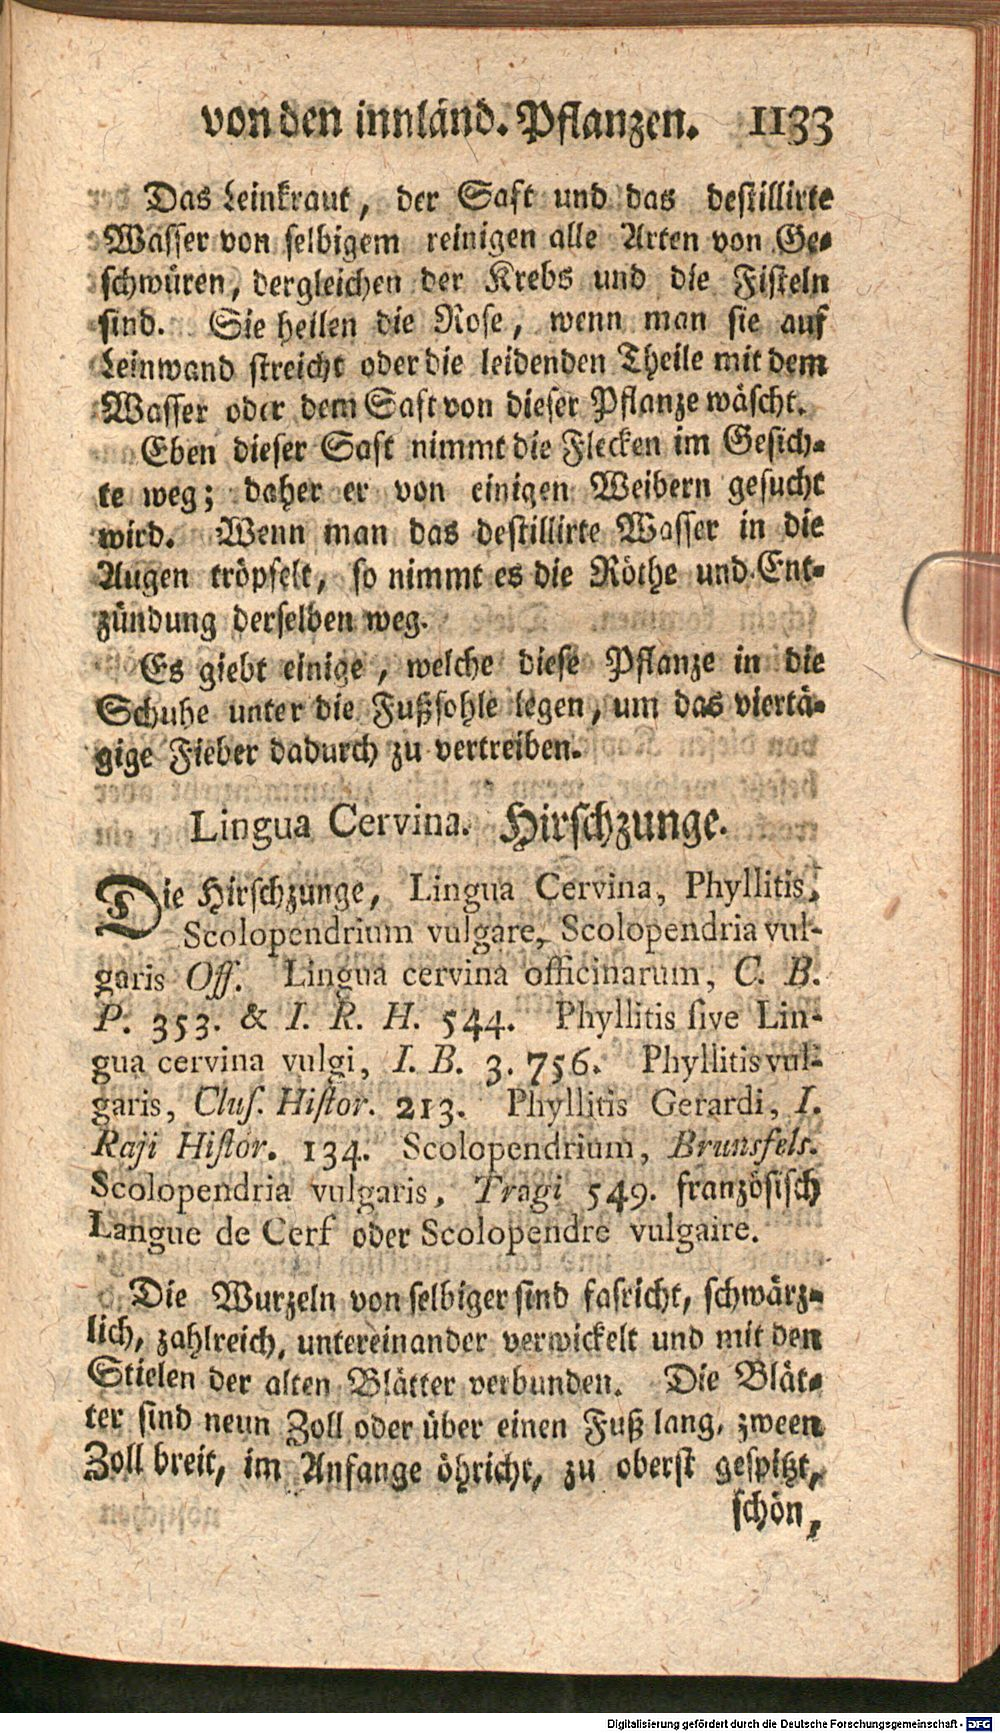 von den innländ. Pflanzen. 1133
Das Leinkraut, der Saft und das destillirte
Wasser von selbigem reinigen alle Arten von Ge-
schwüren, dergleichen der Krebs und die Fisteln
sind. Sie heilen die Rose, wenn man sie auf
Leinwand streicht oder die leidenden Theile mit dem
Wasser oder dem Saft von dieser Pflanze wäscht.
Eben dieser Saft nimmt die Flecken im Gesich-
te weg; daher er von einigen Weibern gesucht
wird. Wenn man das destillirte Wasser in die
Augen tröpfelt, so nimmt es die Röthe und Ent-
zündung derselben weg.
Es giebt einige, welche diese Pflanze in die
Schuhe unter die Fußsohle legen, um das viertä-
gige Fieber dadurch zu vertreiben.
Lingua Cervina. Hirschzunge.
Die Hirschzunge, Lingua Cervina, Phyllitis,
Scolopendrium vulgare, Scolopendria vul-
garis Off. Lingua cervina officinarum, C. B.
P. 353. & I. R. H. 544. Phyllitis sive Lin-
gua cervina vulgi, I. B. 3. 756. Phyllitis vul-
garis, Cluſ. Hiſtor. 213. Phyllitis Gerardi, I.
Raji Hiſtor. 134. Scolopendrium, Brunsfels.
Scolopendria vulgaris, Tragi 549. französisch
Langue de Cerf oder Scolopendre vulgaire.
Die Wurzeln von selbiger sind fasricht, schwärz-
lich, zahlreich, untereinander verwickelt und mit den
Stielen der alten Blätter verbunden. Die Blät-
ter sind neun Zoll oder über einen Fuß lang, zween
Zoll breit, im Anfange öhricht, zu oberst gespitzt,
schön,
Digitalisierung gefördert durch die Deutsche Forschungsgemeinschaft - DFG